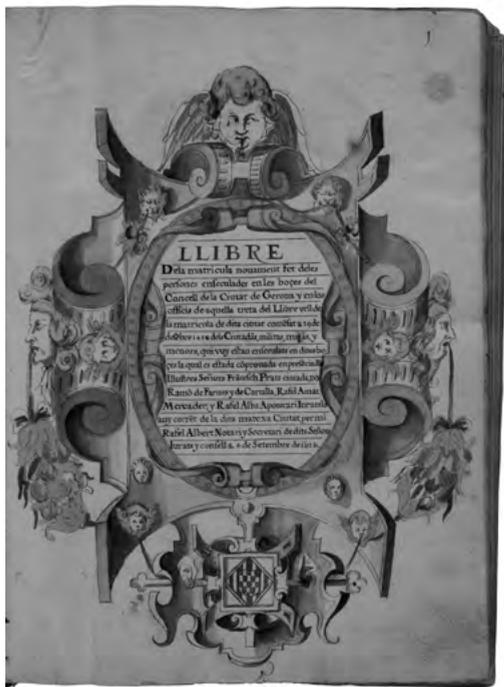 1
LLIBRE
Dela matricula nouament fet deles
persones enseculades en les boçes del
Consell de la Ciutat de Gerona y en los
officis de aquella treta del Llibre vell de
la matricola de dita ciutat comensat a 19 de
dels Ciutadãs, mitjas, y
menors, que vuy estan enseculats en ditas bo
çes la qual es estada cõprouada en presencia dels
Illustres Señors Frãsesch Prats ciutada, 
Ramõ de Farnes y de Cartalla, Rafel Amat
Mercader, y Rafel Alba Apotecari Iurats
añy corrẽt de la dita matexa Ciutat, per mi
Rafel Albert Notari y Secretari de dits Señors
Iurats y consell a de Setembre de